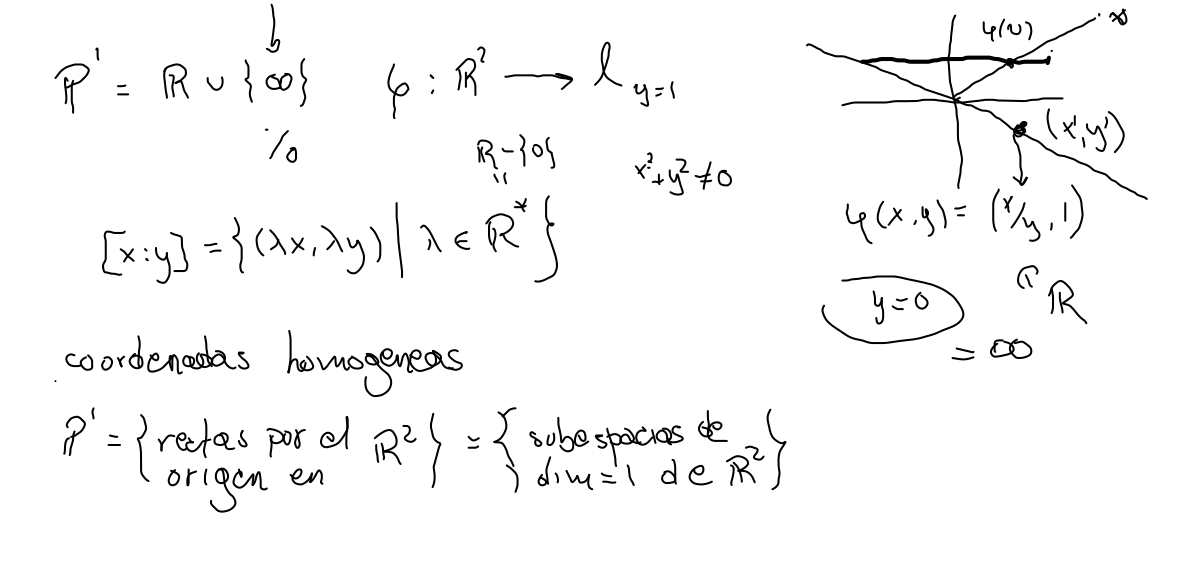 P¹ = ℝ ∪ {∞}
÷/0
φ : ℝ² → l_{y=1}
ℝ-{0}
"
x²+y²≠0
[x:y] = {(λx, λy) | λ ∈ ℝ*}
coordenadas homogeneas
P¹ = {rectas por el origen en ℝ²} = {subespacios de dim=1 de ℝ²}
φ(v)
(x',y')
φ(x,y) = (x/y, 1)
ℝ
y=0
= ∞